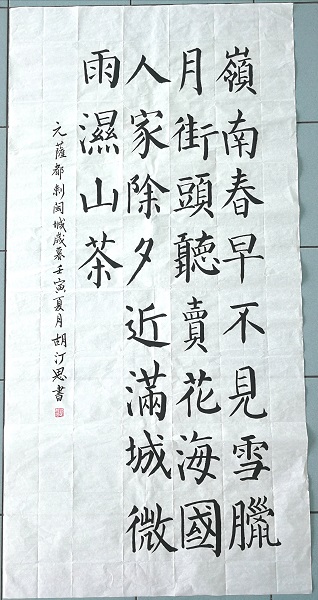 嶺南春早不見雪臘
月街頭聽賣花海國
人家除夕近滿城微
雨濕山茶
元薩都剌閩城歲暮壬寅夏月胡汀思書